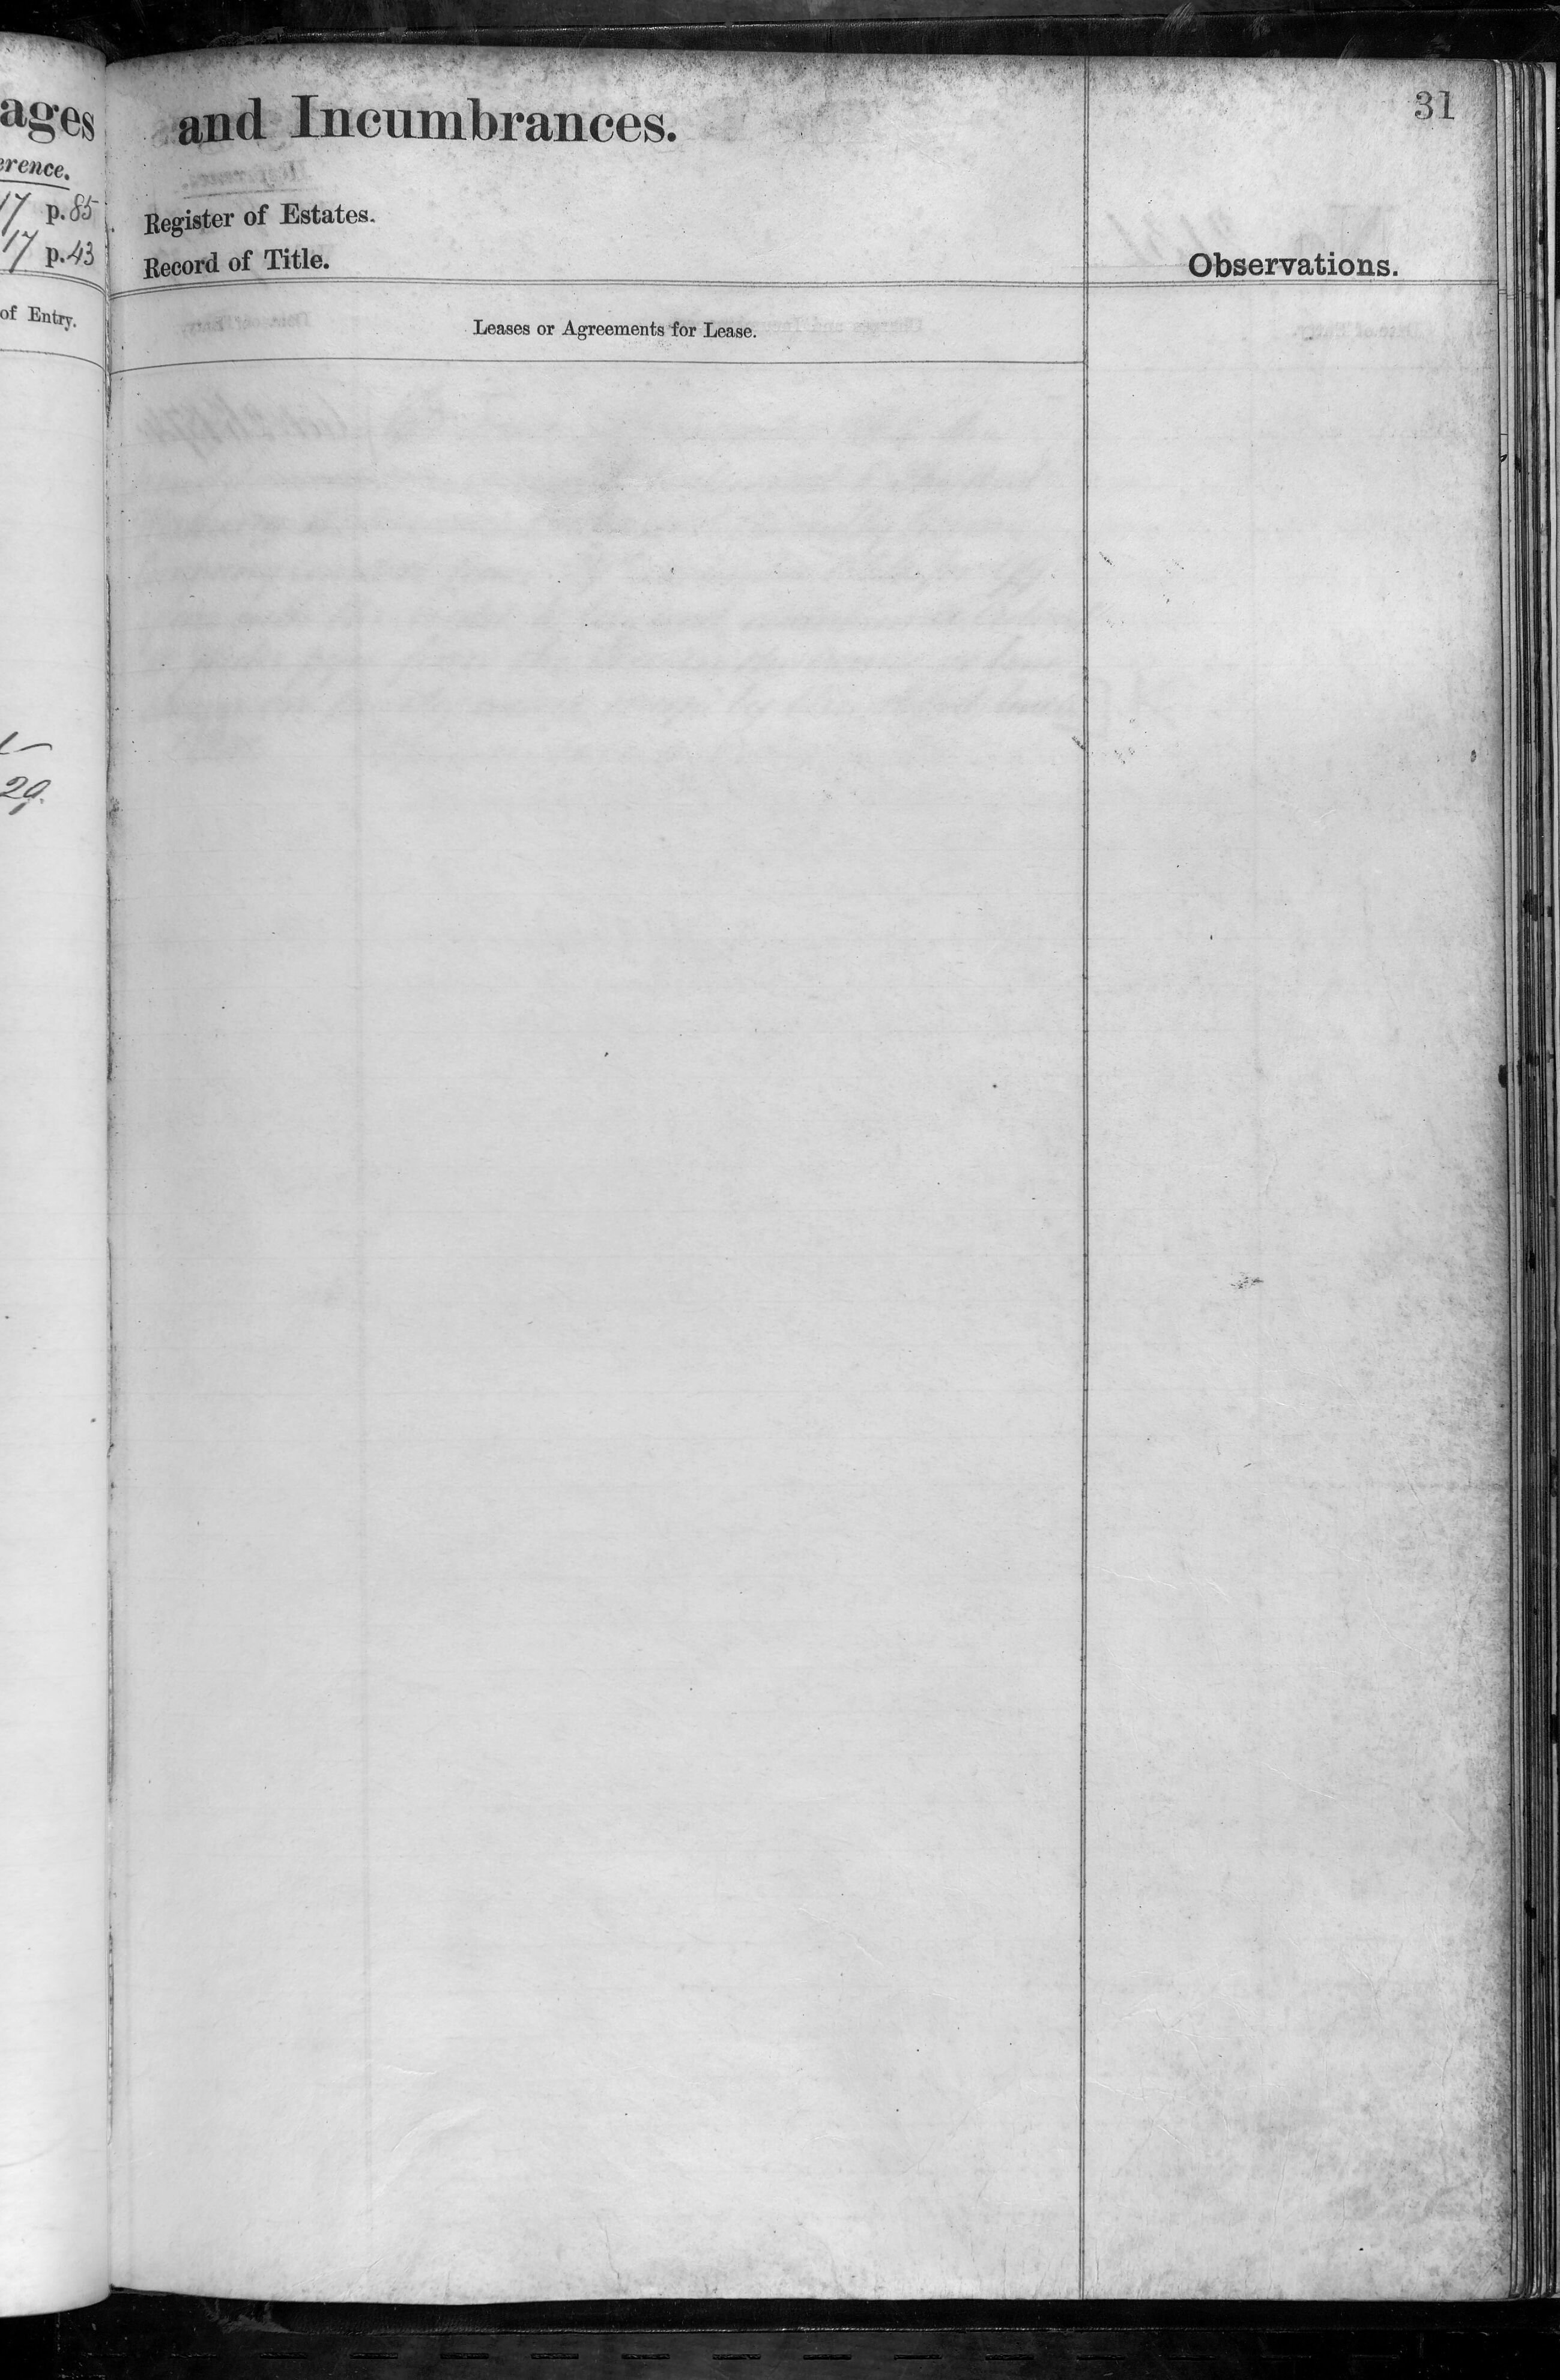 ages
erence.
17 p. 85
17 p. 43
of Entry.
29.
and Incumbrances.
31
Register of Estates.
Record of Title.
Observations.
Leases or Agreements for Lease.